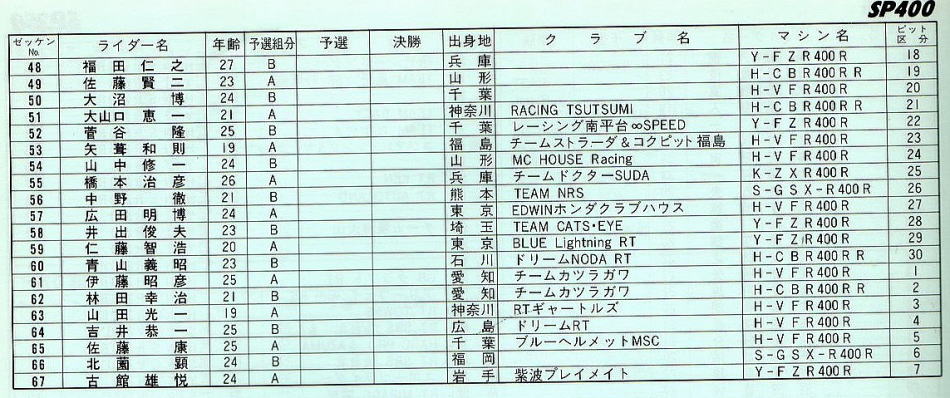 SP400
ゼッケンNo. ライダー名 年齢 予選組分 予選 決勝 出身地 クラブ名 マシン名 ピット区分
48 福田仁之 27 B 兵庫 Y-FZR400R 18
49 佐藤賢二 23 A 山形 H-CBR400RR 19
50 大沼博 24 B 千葉 H-VFR400R 20
51 大山口恵一 21 A 神奈川 RACING TSUTSUMI H-CBR400RR 21
52 菅谷隆 25 B 千葉 レーシング南平台∞SPEED Y-FZR400R 22
53 矢葺和則 19 A 福島 チームストラーダ&コクピット福島 H-VFR400R 23
54 山中修一 24 B 山形 MC HOUSE Racing H-VFR400R 24
55 橋本治彦 26 A 兵庫 チームドクターSUDA K-ZXR400R 25
56 中野徹 21 B 熊本 TEAM NRS S-GSX-R400R 26
57 広田明博 24 A 東京 EDWINホンダクラブハウス H-VFR400R 27
58 井出俊夫 23 B 埼玉 TEAM CATS・EYE Y-FZR400R 28
59 仁藤智浩 20 A 東京 BLUE Lightning RT Y-FZR400R 29
60 青山義昭 23 B 石川 ドリームNODA RT H-CBR400RR 30
61 伊藤昭彦 25 A 愛知 チームカツラガワ H-VFR400R 1
62 林田幸治 21 B 愛知 チームカツラガワ H-CBR400RR 2
63 山田光一 19 A 神奈川 RTギャートルズ H-VFR400R 3
64 吉井恭一 25 B 広島 ドリームRT H-VFR400R 4
65 佐藤康 25 A 千葉 ブルーヘルメットMSC H-VFR400R 5
66 北園顕 24 B 福岡 S-GSX-R400R 6
67 古館雄悦 24 A 岩手 紫波プレイメイト Y-FZR400R 7